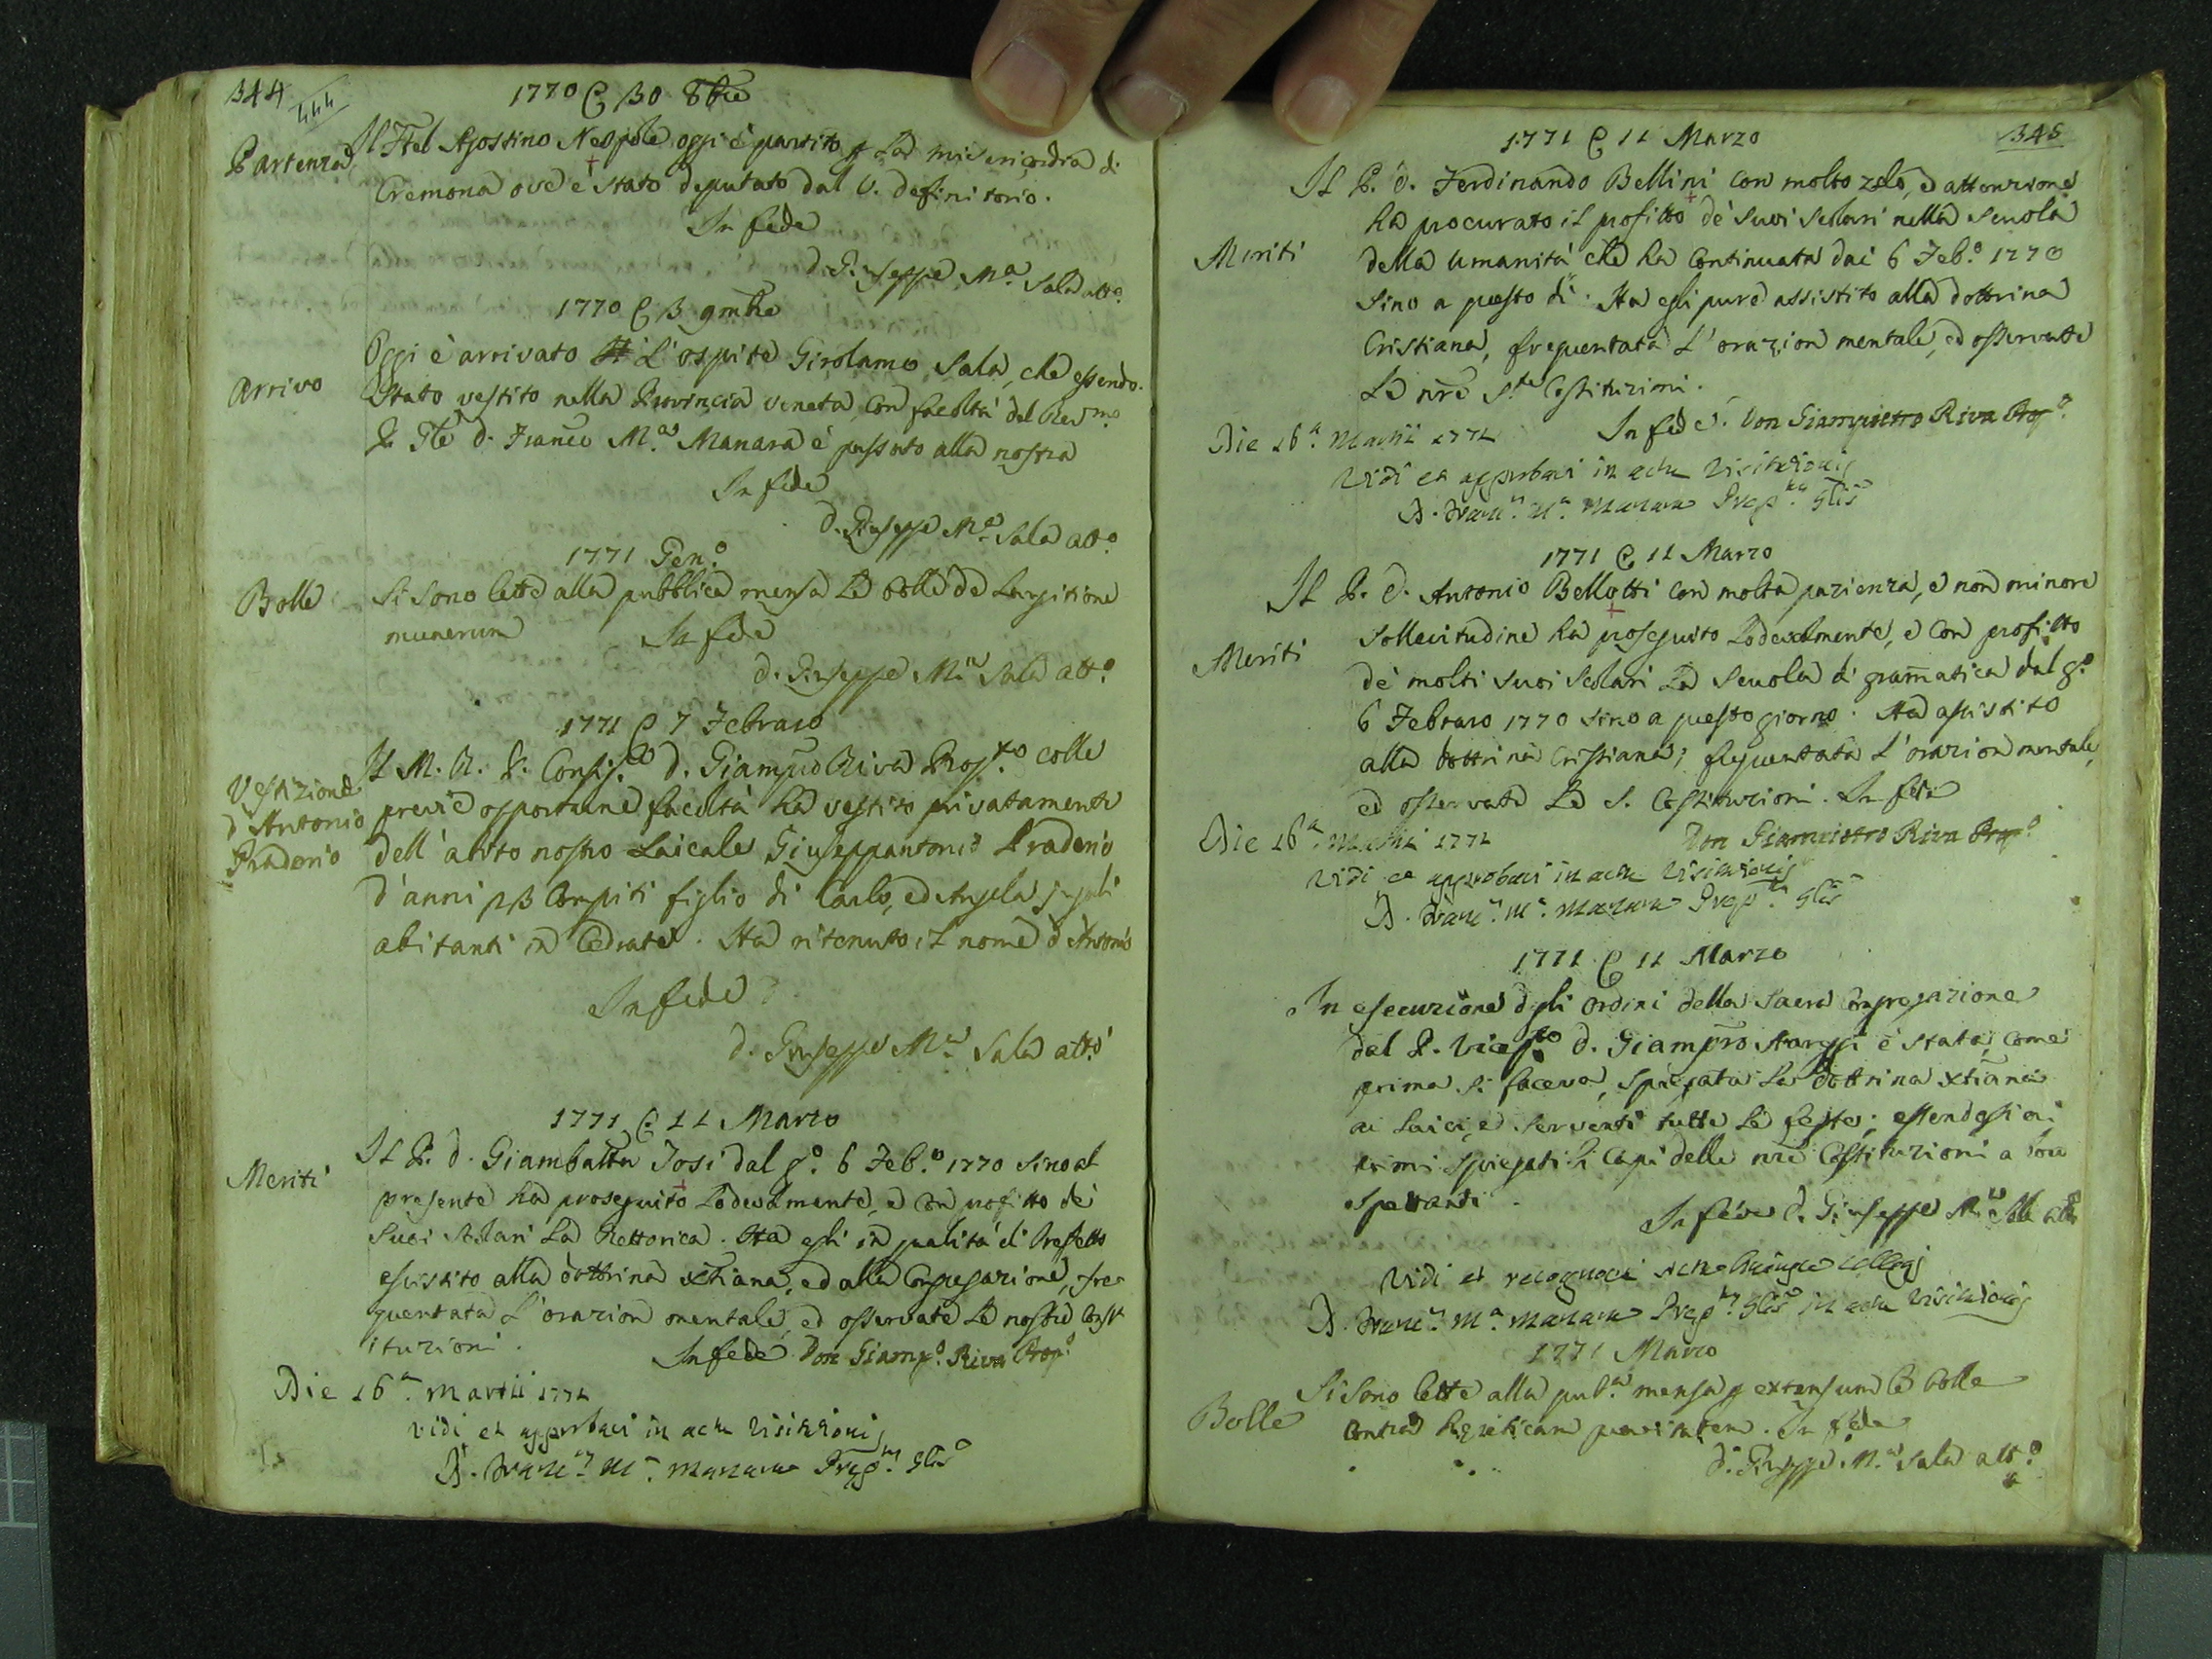 344
444
1770 @ 30 8bre
Partenza
Il Frel Agostino Neopole oggi è partito p la misericordia di
Cremona ove è stato deputato dal V. definitorio.
In fede
d. Giuseppe Mª Sala atto
1770 @ 3 9mbre
Arrivo
Oggi è arrivato l'ospite Girolamo Sala, che essendo
stato vestito nella Provincia veneta con facoltà del Revmo
P. Gle d. Franco Mª Manara è passato alla nostra
In fede
d. Giuseppe Mª Sala atto
1771 Geno
Bolle
Si sono lette alla pubblica mensa le bolle de Largitione
munerum
In fede
d. Giuseppe Mª Sala atto
1771 @ 7 Febraro
Vestizione
d'Antonio
Praderio
Il M. R. P. Consigre d. Giampro Riva Propto colle
previe opportune facoltà ha vestito privatamente
dell'abito nostro Laicale Giuseppantonio Praderio
d'anni 23 compiti figlio di Carlo, ed Angela jugali
abitanti in Cedrate. Ha ritenuto il nome d'Antonio
In fede
d. Giuseppe Mª Sala atto
1771 @ 11 Marzo
Meriti
Il P. d. Giambatta Josi dal go 6 Febo 1770 sino al
presente ha proseguito lodevolmente, e con profitto de'
suoi scolari la Rettorica. Ha egli in qualità di Prefetto
assistito alla dottrina xtiana, ed alla Congregazione, fre=
quentata l'orazion mentale, ed osservate le nostre Const
ituzioni.
In fede Don Giampo Riva Propo
Die 16ª martii 1771
vidi et approbavi in actu visitationis
D. Franus Mª Manara Prepus Glis
345
1771 @ 11 Marzo
Meriti
Il P. d. Ferdinando Bellini con molto zelo, e attenzione
ha procurato il profitto de' suoi scolari nella scuola
della umanità che ha continuata dai 6 Febo 1770
sino a questo dì. Ha egli pure assistito alla dottrina
Cristiana, frequentata l'orazion mentale, ed osservate
le nre Ste Costituzioni.
In fede Don Giampietro Riva Propo
Die 16ª Martii 1771
Vidi et approbavi in actu Visitationis
D. Franus Mª Manara Prepus Glis
1771 @ 11 Marzo
Meriti
Il P. d. Antonio Bellotti con molta pazienza, e non minore
sollecitudine ha proseguito lodevolmente, e con profitto
de' molti suoi scolari la scuola di gram̅atica dal go
6 Febraro 1770 sino a questo giorno. Ha assistito
alla dottrina Cristiana; frequentata l'orazion mentale,
ed osservate le S. Costituzioni. In fede
Don Giampietro Riva Propo
Die 16ª Martii 1771
Vidi et approbavi in actu Visitationis
D. Franus Mª Manara Prepus Glis
1771 @ 11 Marzo
In esecuzione degli ordini della Sacra Congregazione
dal P. Viceppto d. Giampro è stata, come
prima si faceva, spiegata la dottrina xtiana
ai Laici, e serventi tutte le feste; essendosi ai
primi spiegati li Capi delle nre Costituzioni a loro
spettanti.
In fede d. Giuseppe Mª Sala atto
Vidi et recognovi acta huiusce collegj
D. Franus Mª Manara Prepus Glis in actu visitationis
1771 Marzo
Bolle
Si sono lette alla pubª mensa p extensum le bolle
contra hereticam pravitatem. In fede
d. Giuseppe Mª Sala atto